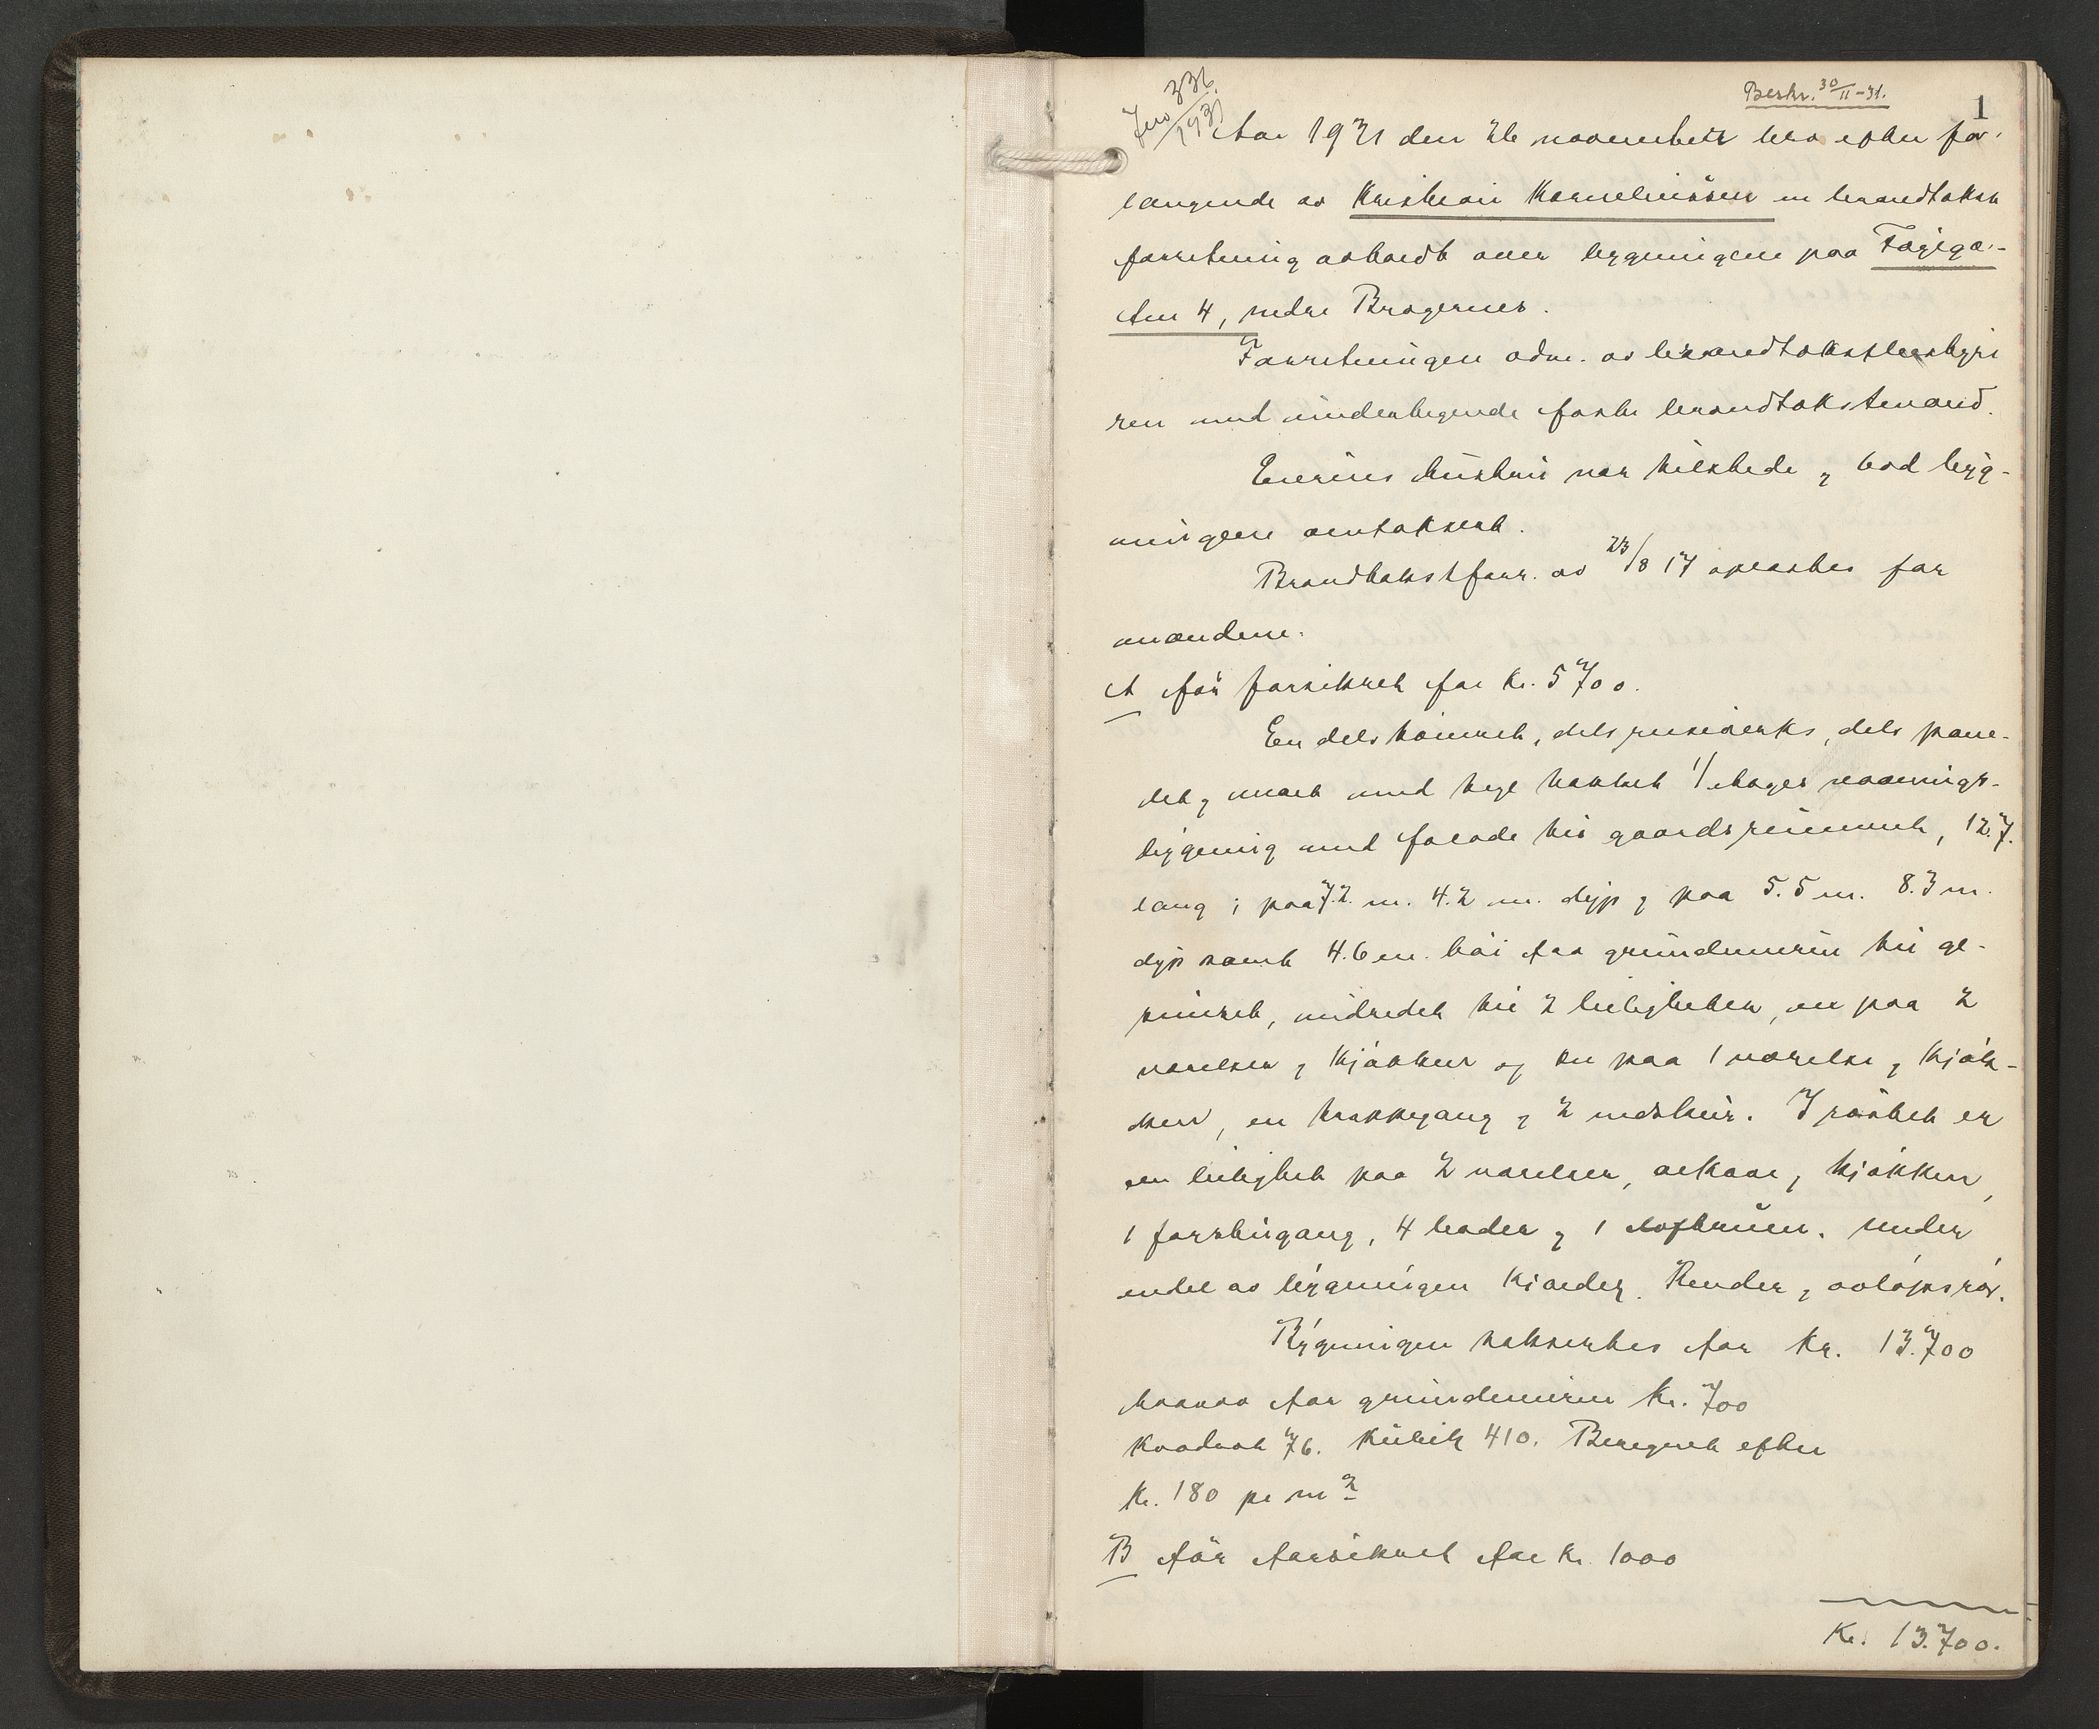 Jno 336/1931
Beskr. 30/11-31.
1
Aar 1931 den 26 november blev efter for-
langende av Kristian Kornelinssen en brandtakst
forretning avholdt over bygningene paa Fogega-
ten 4, nedre Bragernes.
Forretningen adm. av brandtakstbestyre
ren med undertegnede faste brandtakstmænd.
Eierens hustru var tilstede, bad byg-
ningene omtaksert.
Brandtakstforr. av 23/8 17 oplæstes for
mændene.
A før forsikret for Kr. 5700.
En dels tømret, dels reisverks, dels pane-
let, malt med tegl tækket 1/ etages vaanings-
bygning med facade til gaardsrummet, 12.7.
lang; paa 7.2. m. 4.2 m. dyp, paa 5.5 m. 8.3 m.
dyp samt 4.6 m. høi fra grundmuren til ge-
simset, indredet til 2 leiligheter, en paa 2
værelser, kjøkken og en paa 1 værelse, kjøk-
ken, en trappegang, 2 indskur. I røstet er
en leilighet paa 2 værelser, alkove, kjøkken,
1 forstugang, 4 boder, 1 loftrum. Under
endel av bygningen kjælder. Render, avløpsrør.
Bygningen taksertes for Kr. 13.700
herav for grundmuren Kr. 700
Kvadrat 76. Kubik 410. Beregnet efter
Kr. 180 pr m2
B før forsikret for Kr. 1000
Kr. 13.700.